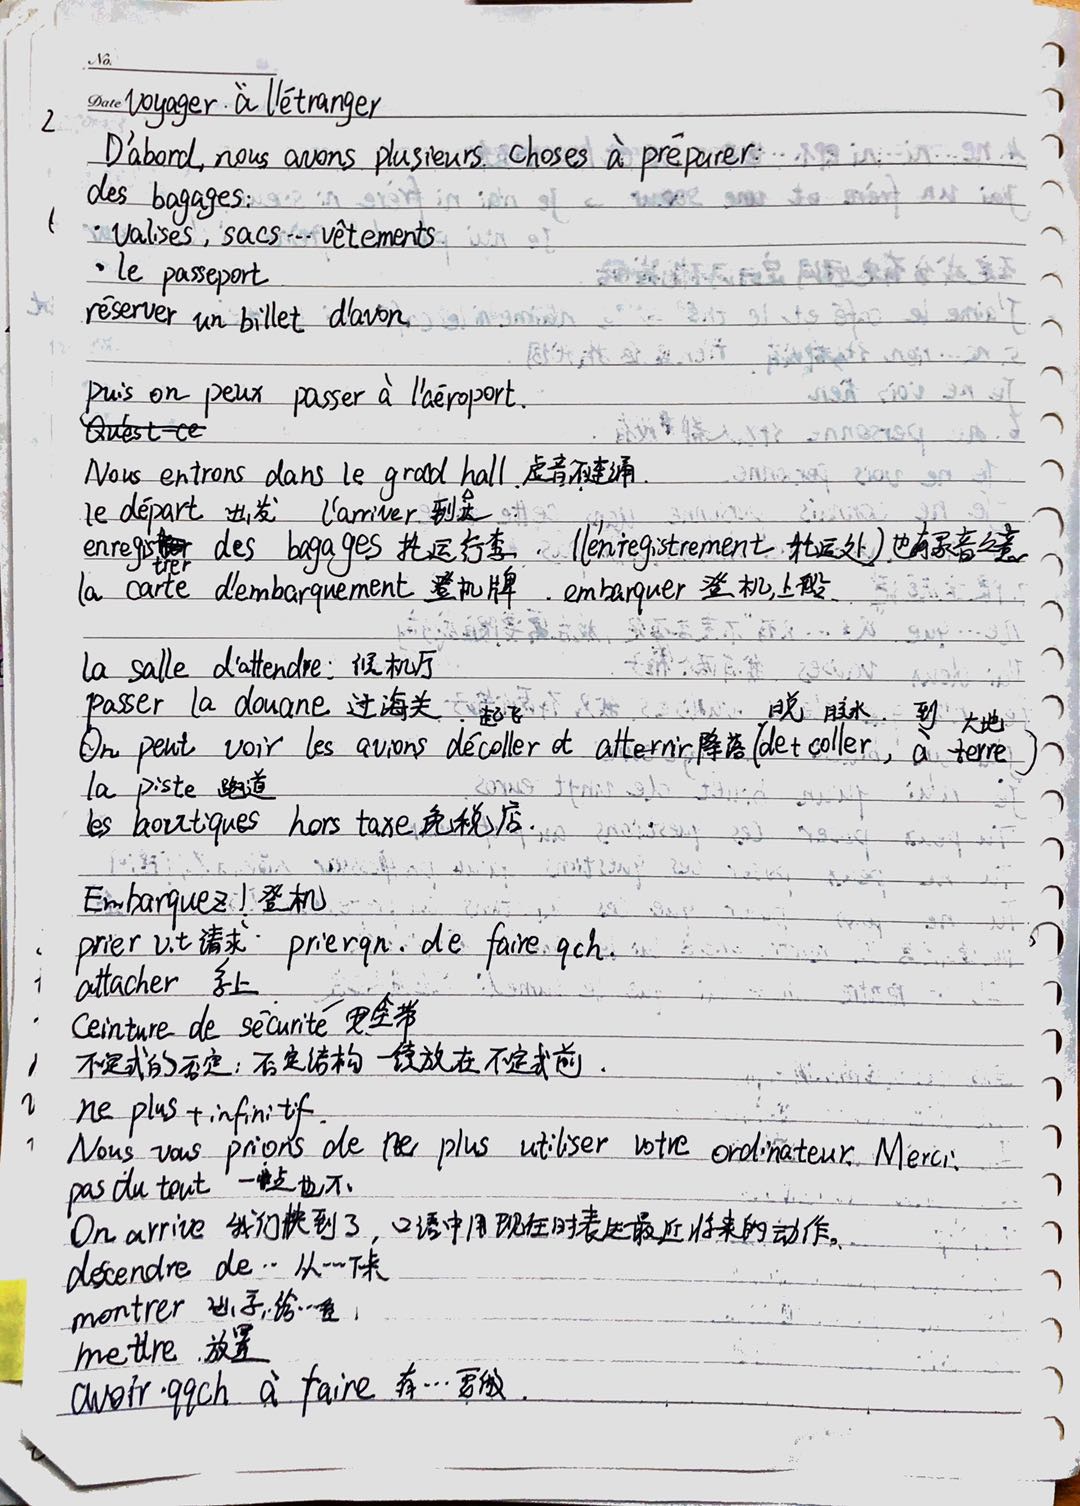 No.
Date Voyager à l'étranger
2
D'abord, nous avons plusieurs choses à préparer:
des bagages:
· valises, sacs... vêtements
· le passeport
réserver un billet d'avon.
Puis on peux passer à l'aéroport.
Quest-ce
Nous entrons dans le grand hall 虚音不连诵.
le départ 出发 l'arriver 到达
enregistrer des bagages 托运行李. (l'enregistrement 托运处) 也有录音之意
la carte d'embarquement 登机牌. embarquer 登机,上船
la salle d'attendre: 候机厅
passer la douane 过海关
起飞 脱 胶水 到 大地
On peut voir les avions décoller et atterrir 降落 (de+coller, à terre)
la piste 跑道
les boutiques hors taxe 免税店.
Embarquez! 登机
prier v.t 请求· prier qn. de faire qch.
attacher 系上
Ceinture de sécurité 安全带
不定式的否定: 否定结构一续放在不定式前.
ne plus + infinitif.
Nous vous prions de ne plus utiliser votre ordinateur. Merci.
pas du tout 一点也不.
On arrive 我们快到了, 口语中用现在时表达最近将来的动作。
descendre de... 从...下来
montrer 出示,给...看.
mettre 放置
avoir qqch à faire 有...要做.